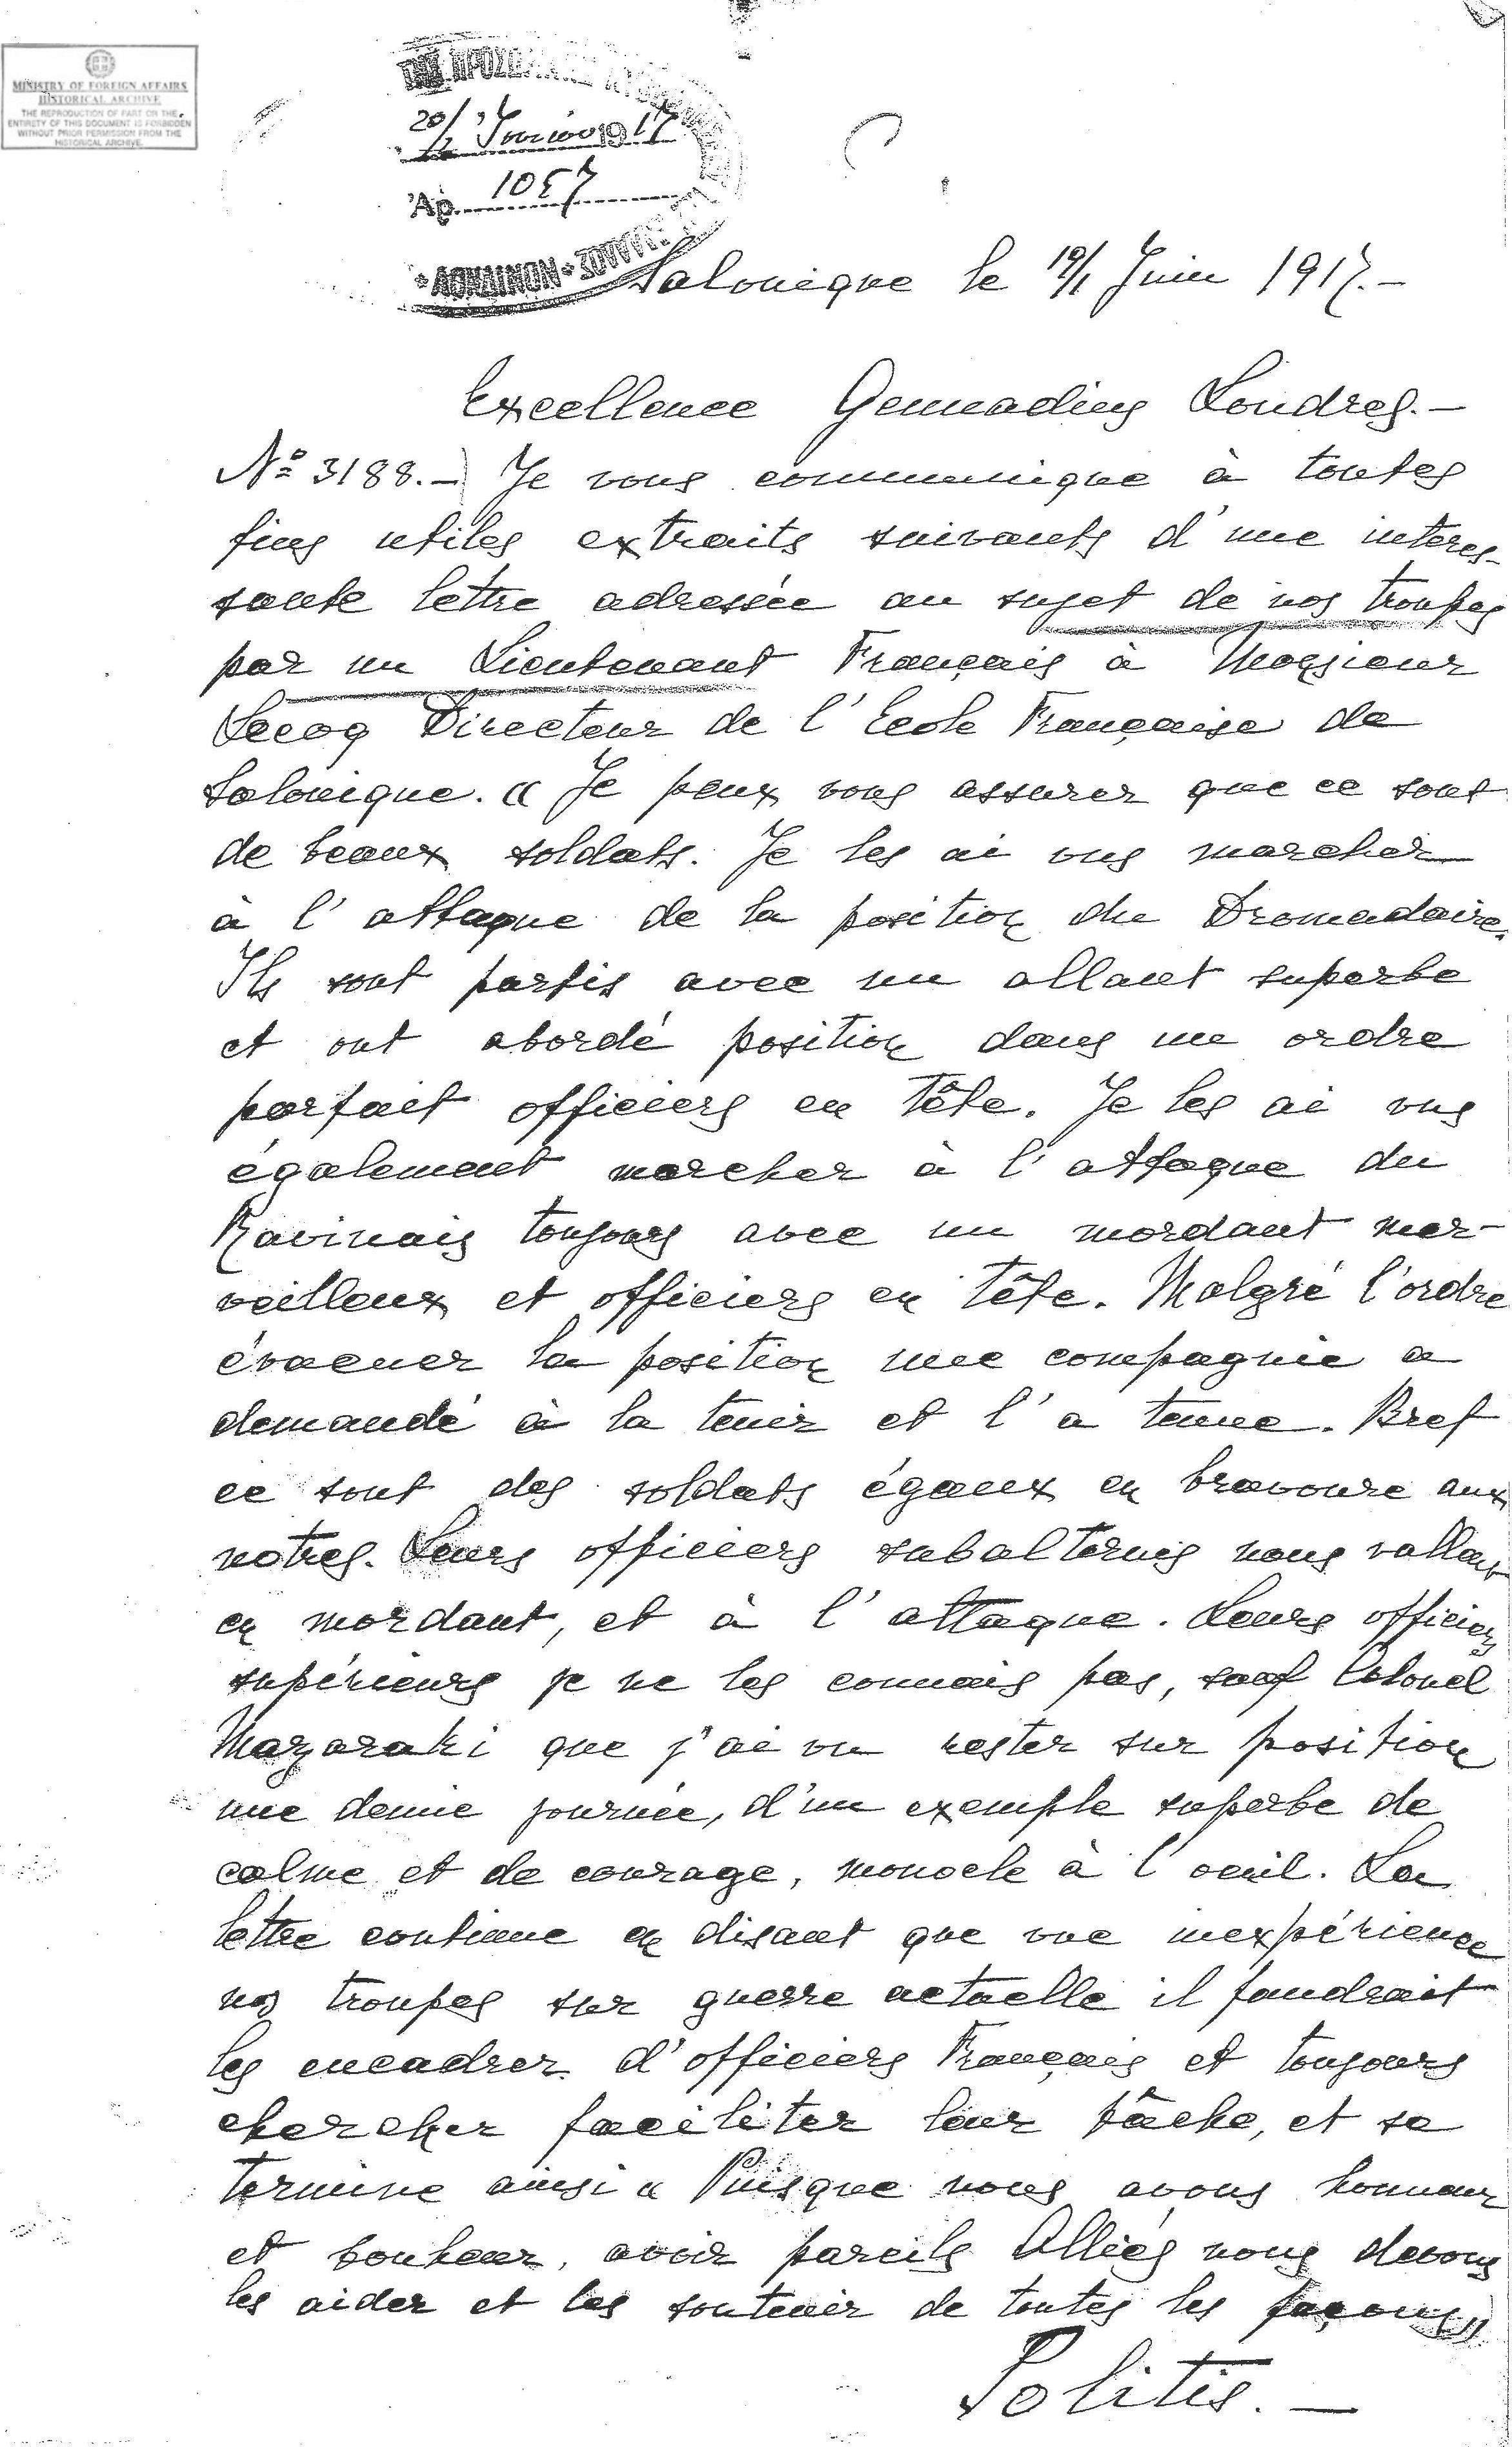 MINISTRY OF FOREIGN AFFAIRS
HISTORICAL ARCHIVE
THE REPRODUCTION OF PART OR THE
ENTIRETY OF THIS DOCUMENT IS FORBIDDEN
WITHOUT PRIOR PERMISSION FROM THE
HISTORICAL ARCHIVE.
20/2 Ἰουνίου 1917
Ἀρ. 1057
Salonique le 19/1 Juin 1917.-
Excellence Gennadius Londres.-
No 3188.-) Je vous communique à toutes
fins utiles extraits suivants d'une interes-
sante lettre adressée au sujet de nos troupes
par un Lieutenant Français à Monsieur
Lecoq Directeur de l'Ecole Française de
Salonique. « Je peux vous assurer que ce sont
de beaux soldats. Je les ai vus marcher
à l'attaque de la position du Dromadaire.
Ils sont partis avec un allant superbe
et ont abordé position dans un ordre
parfait officiers en tête. Je les ai vus
également marcher à l'attaque du
Ravinais toujours avec un mordant mer-
veilleux et officiers en tête. Malgré l'ordre
évacuer la position une compagnie a
demandé à la tenir et l'a tenue. Bref
ce sont des soldats égaux en bravoure aux
notres. Leurs officiers subalternes nous vallent
en mordant, et à l'attaque. Leurs officiers
supérieurs je ne les connais pas, sauf Colonel
Mazaraki que j'ai vu rester sur position
une demie journée, d'un exemple superbe de
calme et de courage, monocle à l'oeuil. La
lettre continue en disant que vue inexpérience
nos troupes sur guerre actuelle il faudrait
les encadrer d'officiers Français et toujours
chercher faciliter leur tâche, et se
termine ainsi « Puisque nous avons honneur
et bonheur, avoir pareils Alliés nous devons
les aider et les soutenir de toutes les façons»
Politis.-